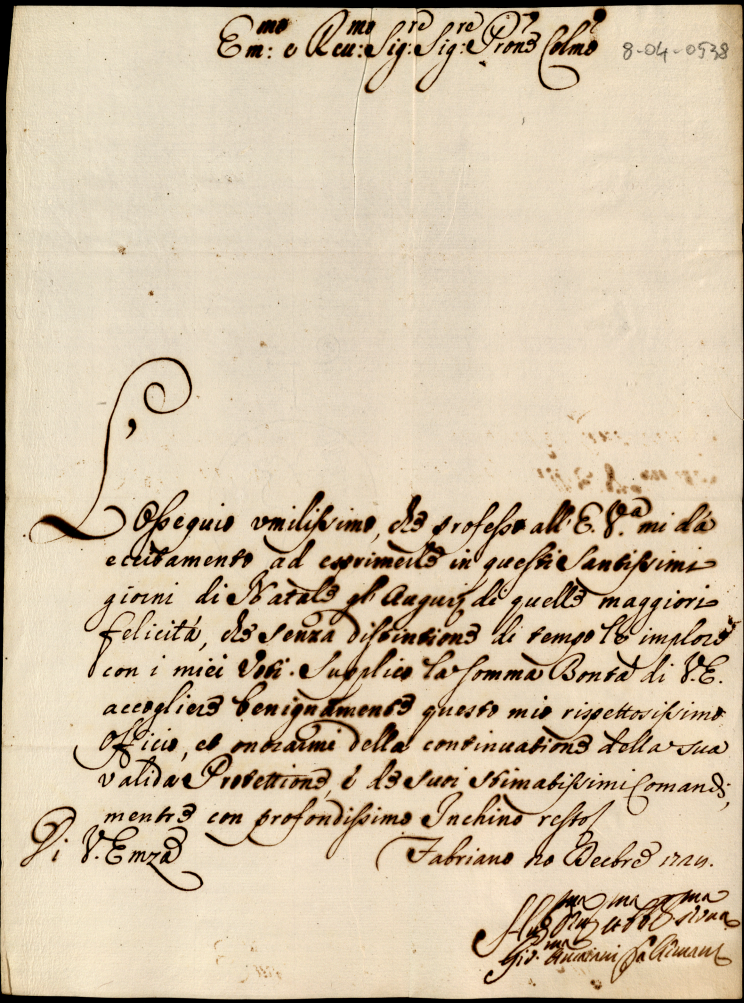 Em:mo e Reu:mo Sig:re Sig:re Prone Colmo
8-04-0538
L'Ossequio vmilissimo, che professo all'E. V.a mi dà
eccitamento ad esprimerle in questi Santissimi
giorni di Natale gl'Augurij di quelle maggiori
felicità, che senza distintione di tempo le imploro
con i miei Voti. Supplico la somma Bontà di V.E.
accogliere benignamente questo mio rispettosissimo
Officio, et onorarmi della continuatione della sua
valida Protettione, e de suoi stimatissimi Comandi,
mentre con profondissimo Inchino resto
Di V. Emza
Fabriano 20 Decbre